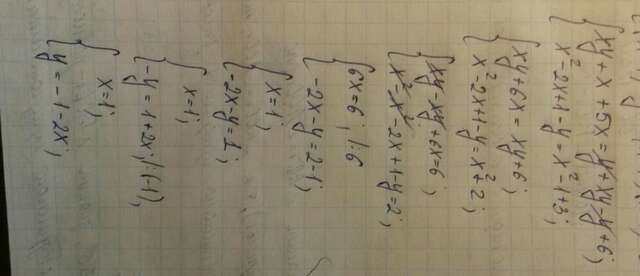 xy + x + 5x = y + xy - y + 6;
x² - 2x + 1 - y = x² - 1 + 3;
xy + 6x = xy + 6;
x² - 2x + 1 - y = x² + 2;
xy - xy + 6x = 6;
x² - x² - 2x + 1 - y = 2;
6x = 6; |:6
-2x - y = 2 - 1;
x = 1;
-2x - y = 1;
x = 1;
-y = 1 + 2x; |·(-1);
x = 1;
y = -1 - 2x;